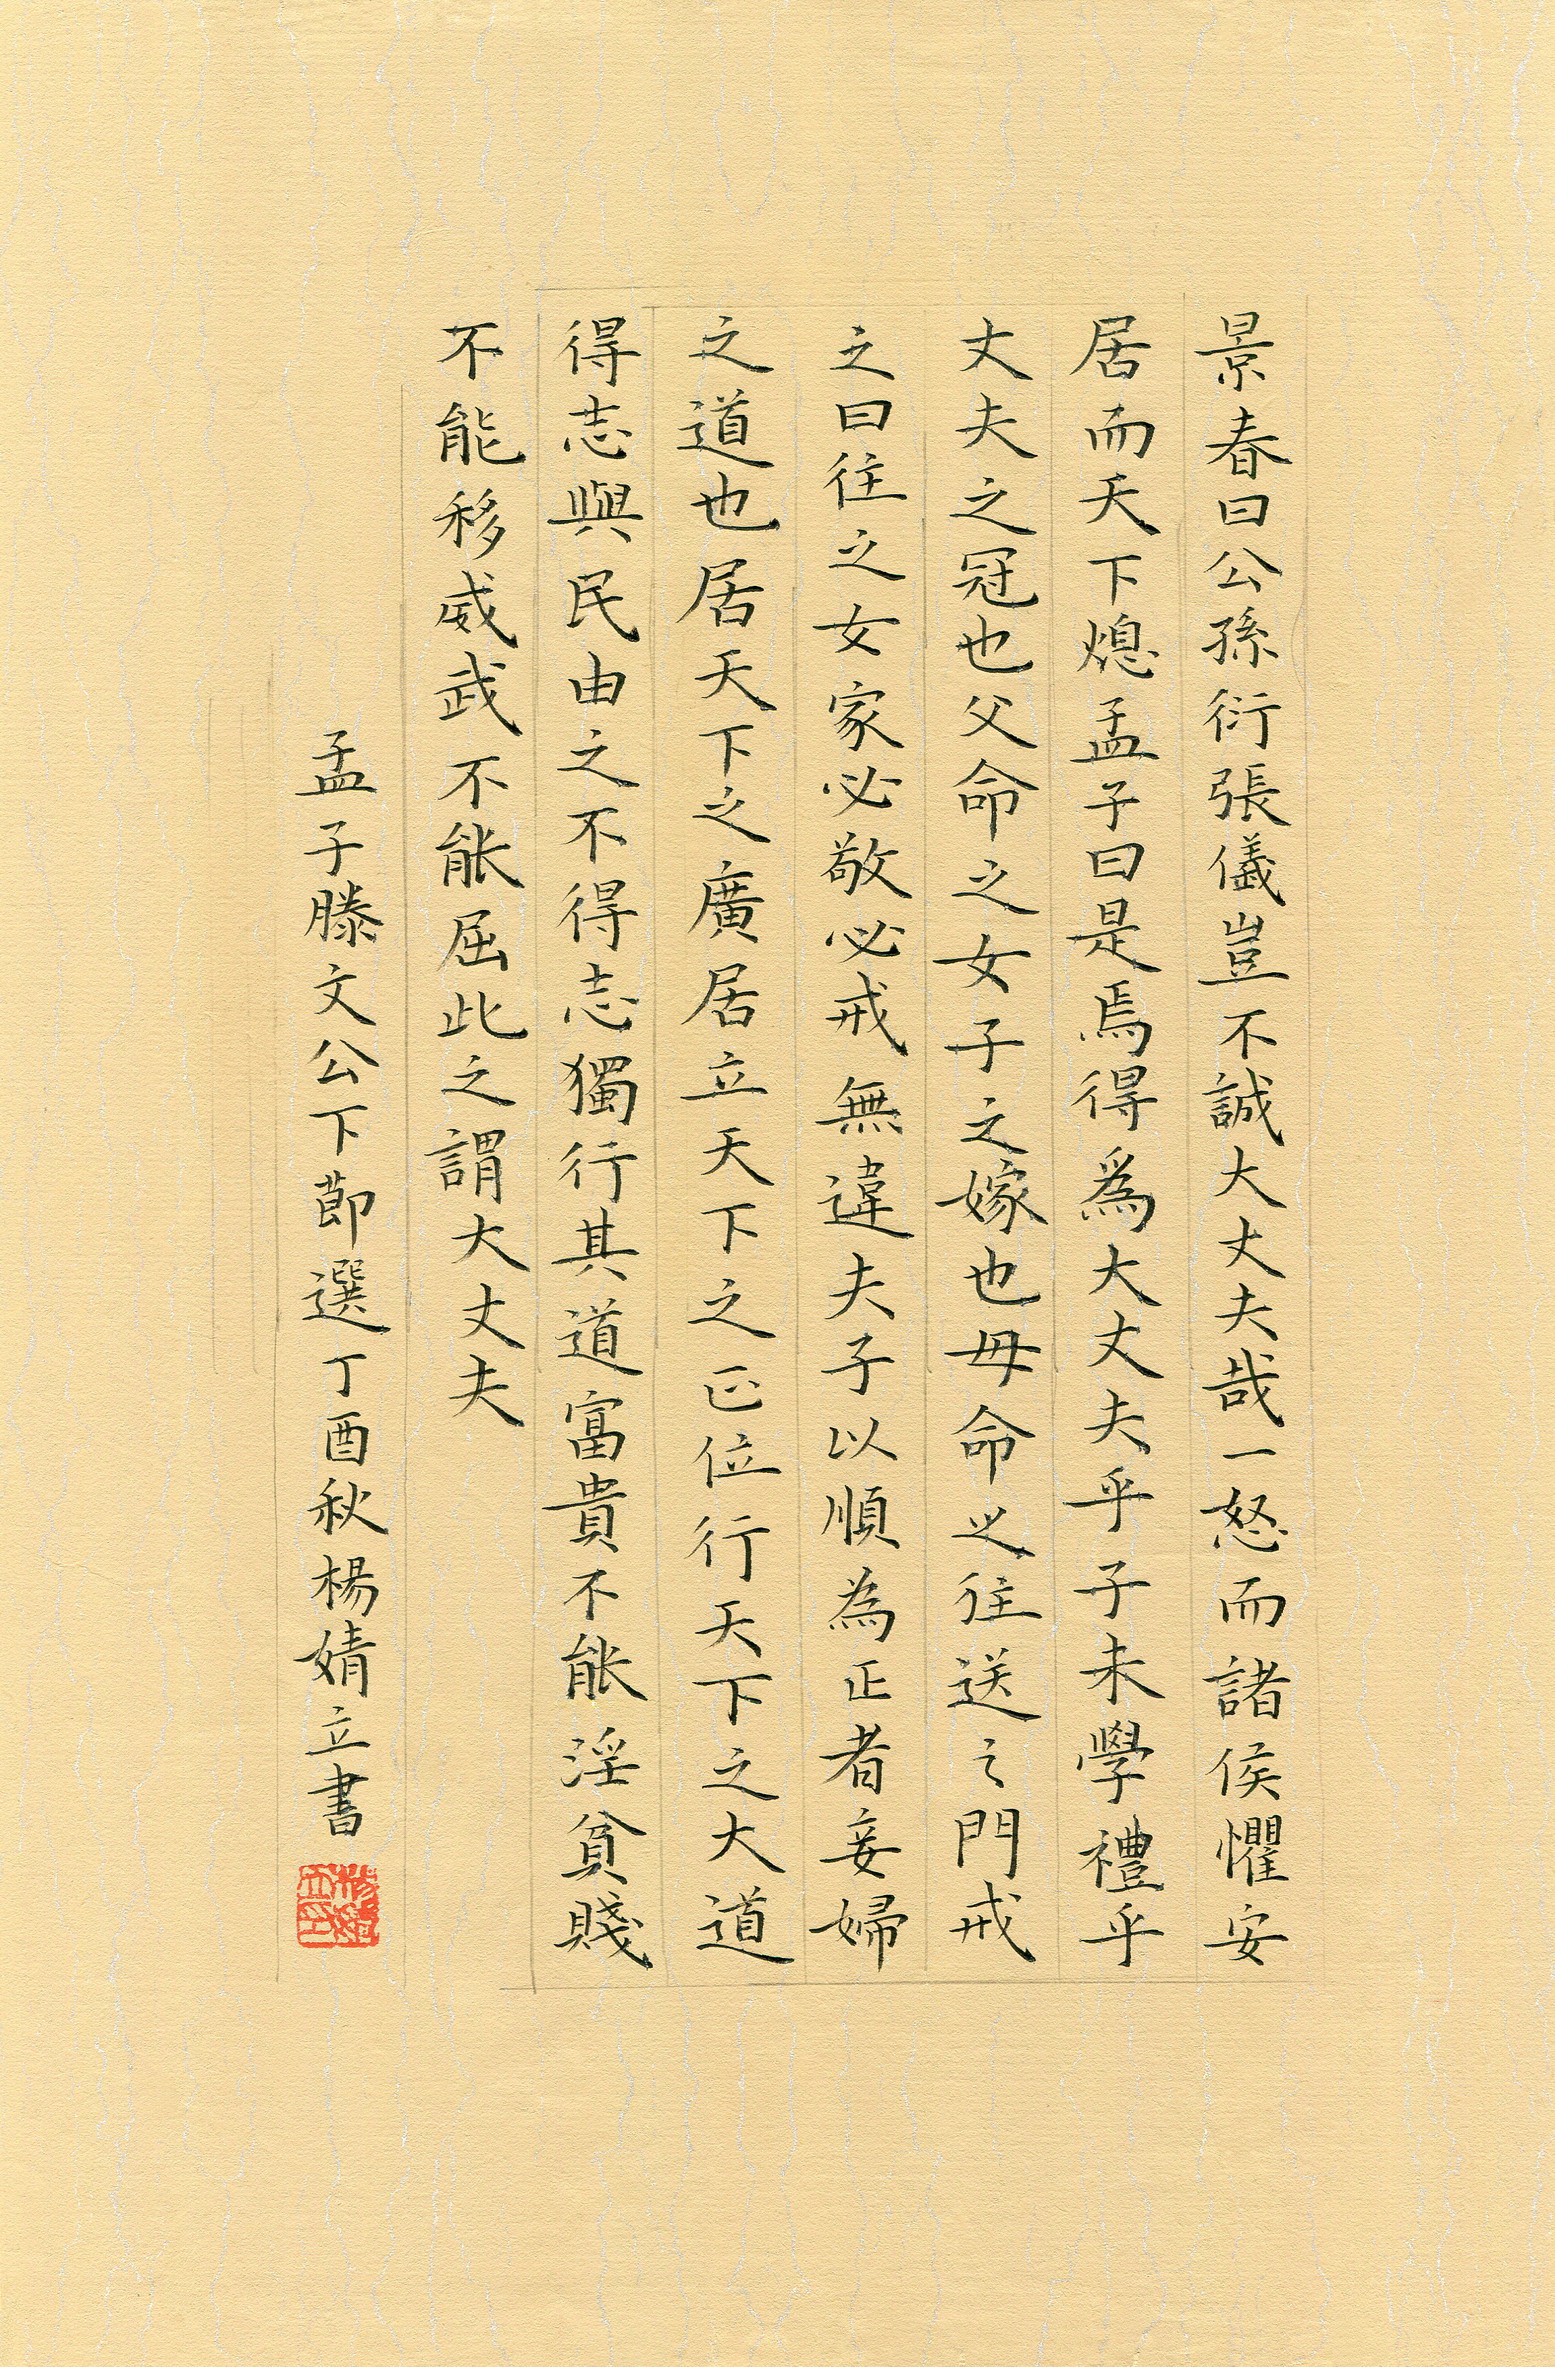 景春曰公孫衍張儀豈不誠大丈夫哉一怒而諸侯懼安
居而天下熄孟子曰是焉得爲大丈夫乎子未學禮乎
丈夫之冠也父命之女子之嫁也毋命之往送之門戒
之曰往之女家必敬必戒無違夫子以順為正者妾婦
之道也居天下之廣居立天下之正位行天下之大道
得志與民由之不得志獨行其道富貴不能淫貧賤
不能移威武不能屈此之謂大丈夫
孟子滕文公下節選丁酉秋楊婧立書